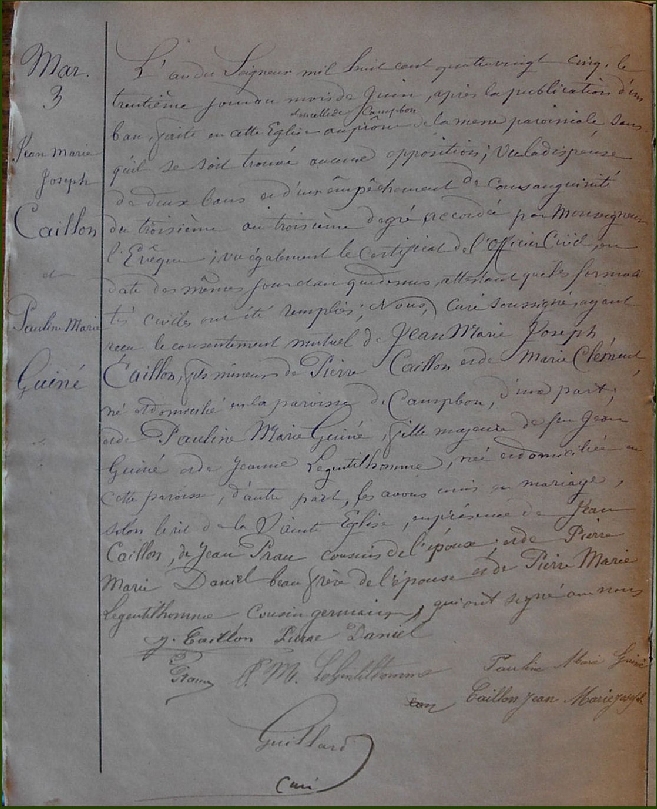 Mar.
3
Jean Marie
Joseph
Caillon
et
Pauline Marie
Guiné
L'an du Seigneur mil huit cent quatre vingt cinq, le
trentième jour du mois de Juin, après la publication d'un
et celle de Campbon
ban, faite en cette Eglise au prône de la messe paroissiale, sans
qu'il se soit trouvé aucune opposition; vu la dispense
de deux bans et d'un empêchement de consanguinité
du troisième au troisième degré accordée par Monseigneur
l'Evêque; vu également le certificat de l'officier Civil, en
date des mêmes jour et an que dessus, attestant que les formali
tés civiles ont été remplies; Nous, Curé soussigné, ayant
reçu le consentement mutuel de Jean Marie Joseph
Caillon, fils mineur de Pierre Caillon et de Marie Clément,
né et domicilié en la paroisse de Campbon, d'une part;
et de Pauline Marie Guiné, fille majeure de feu Jean
Guiné et de Jeanne Legentilhomme, née et domiciliée en
cette paroisse, d'autre part, les avons unis en mariage,
selon le rit de la Sainte Eglise, en présence de Jean
Caillon, de Jean Praux cousins de l'époux; et de Pierre
Marie Daniel beau frère de l'épouse et de Pierre Marie
Legentilhomme cousin germain, qui ont signé avec nous
J. Caillon Pierre Daniel
P. M. Legentilhomme Pauline Marie Guiné
Caillon Jean Marie Joseph
Guillard
Curé